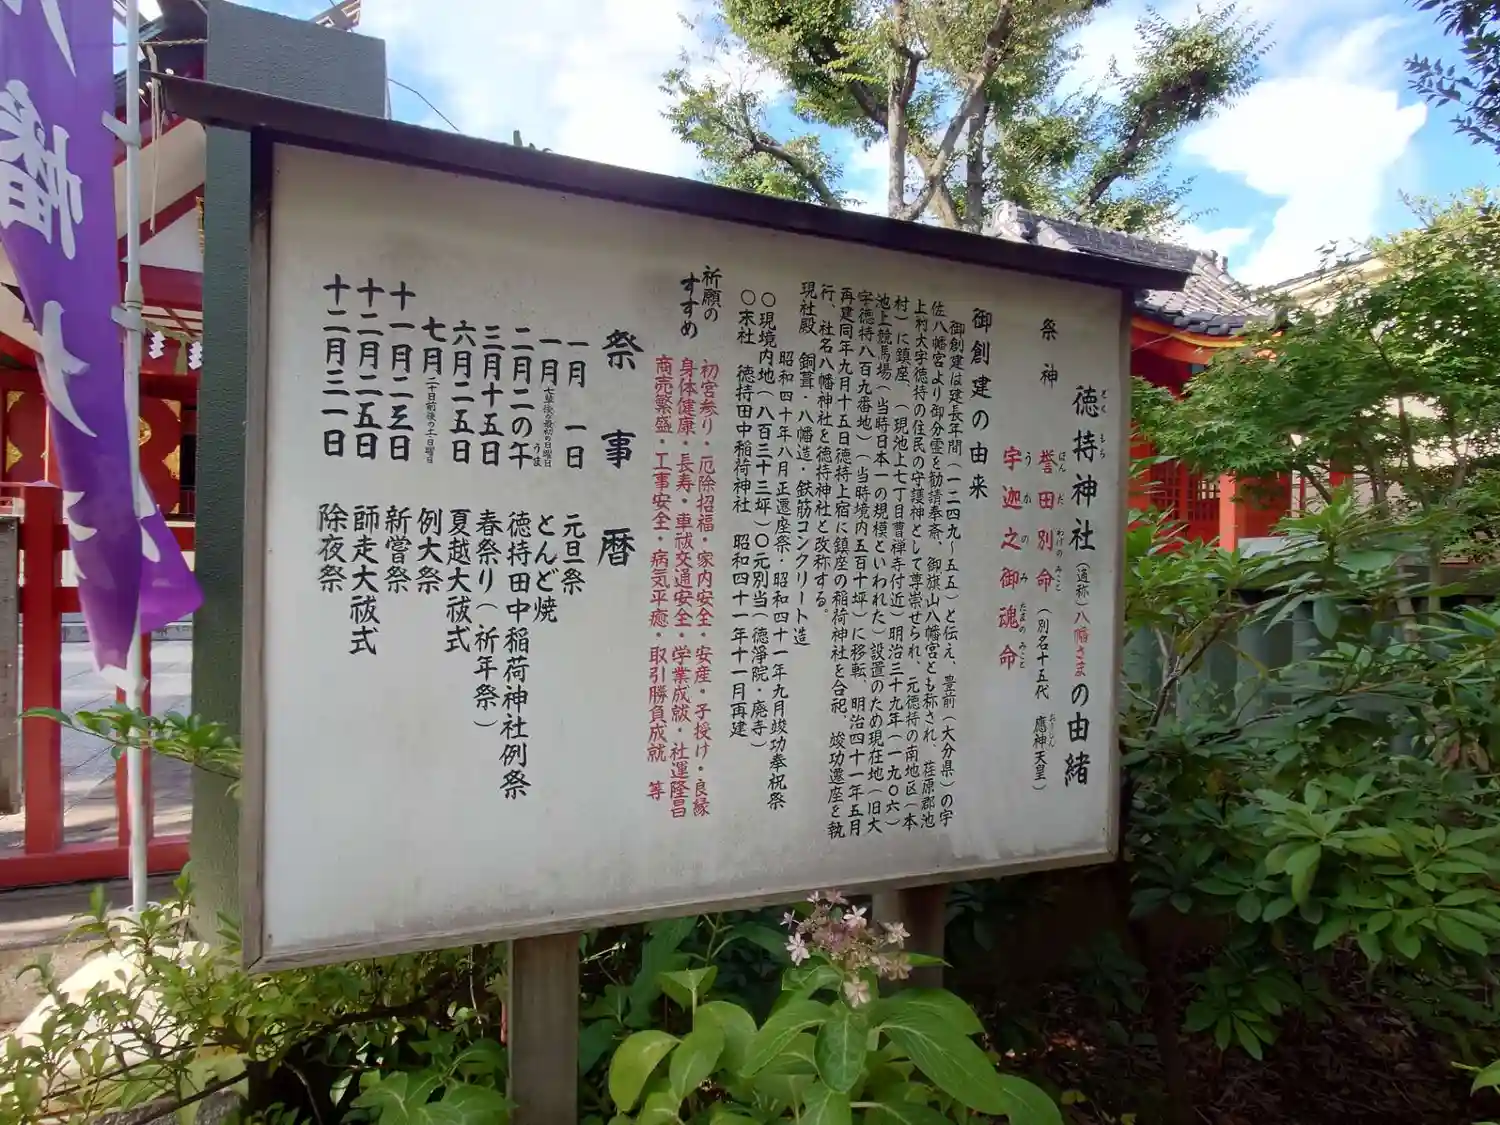 徳持神社(通称)八幡さまの由緒
とくもち
祭神 誉田別命(別名十五代 應神天皇)
ほんだわけのみこと
おうじん
宇迦之御魂命
うかのみたまのみこと
御創建の由来
御創建は建長年間(一二四九~五五)と伝え、豊前(大分県)の宇
佐八幡宮より御分霊を勧請奉斎・御旗山八幡宮とも称され、荏原郡池
上村大字徳持の住民の守護神として尊崇せられ、元徳持の南地区(本
村)に鎮座、(現池上七丁目曹禅寺付近)明治三十九年(一九〇六)
池上競馬場(当時日本一の規模といわれた)設置のため現在地(旧大
字徳持八百九番地)(当時境内五百十坪)に移転、明治四十一年五月
再建同年九月十五日徳持上宿に鎮座の稲荷神社を合祀 竣功遷座を執
行、社名八幡神社を徳持神社と改称する。
現社殿 銅葺・八幡造・鉄筋コンクリート造
昭和四十年八月正遷座祭・昭和四十一年九月竣功奉祝祭
〇現境内地(八百三十三坪)〇元別当(徳浄院・廃寺)
〇末社 徳持田中稲荷神社 昭和四十一年十一月再建
祈願のすすめ
初宮参り・厄除招福・家内安全・安産・子授け・良縁
身体健康・長寿・車祓交通安全・学業成就・社運隆昌
商売繁盛・工事安全・病気平癒・取引勝負成就 等
祭事暦
一月 一日 元旦祭
一月 七草後の最初の日曜日 とんど焼
二月二の午 徳持田中稲荷神社例祭
うま
三月十五日 春祭り(祈年祭)
六月二五日 夏越大祓式
七月 二十日前後の土日曜日 例大祭
十一月二三日 新嘗祭
十二月二五日 師走大祓式
十二月三一日 除夜祭
八幡大